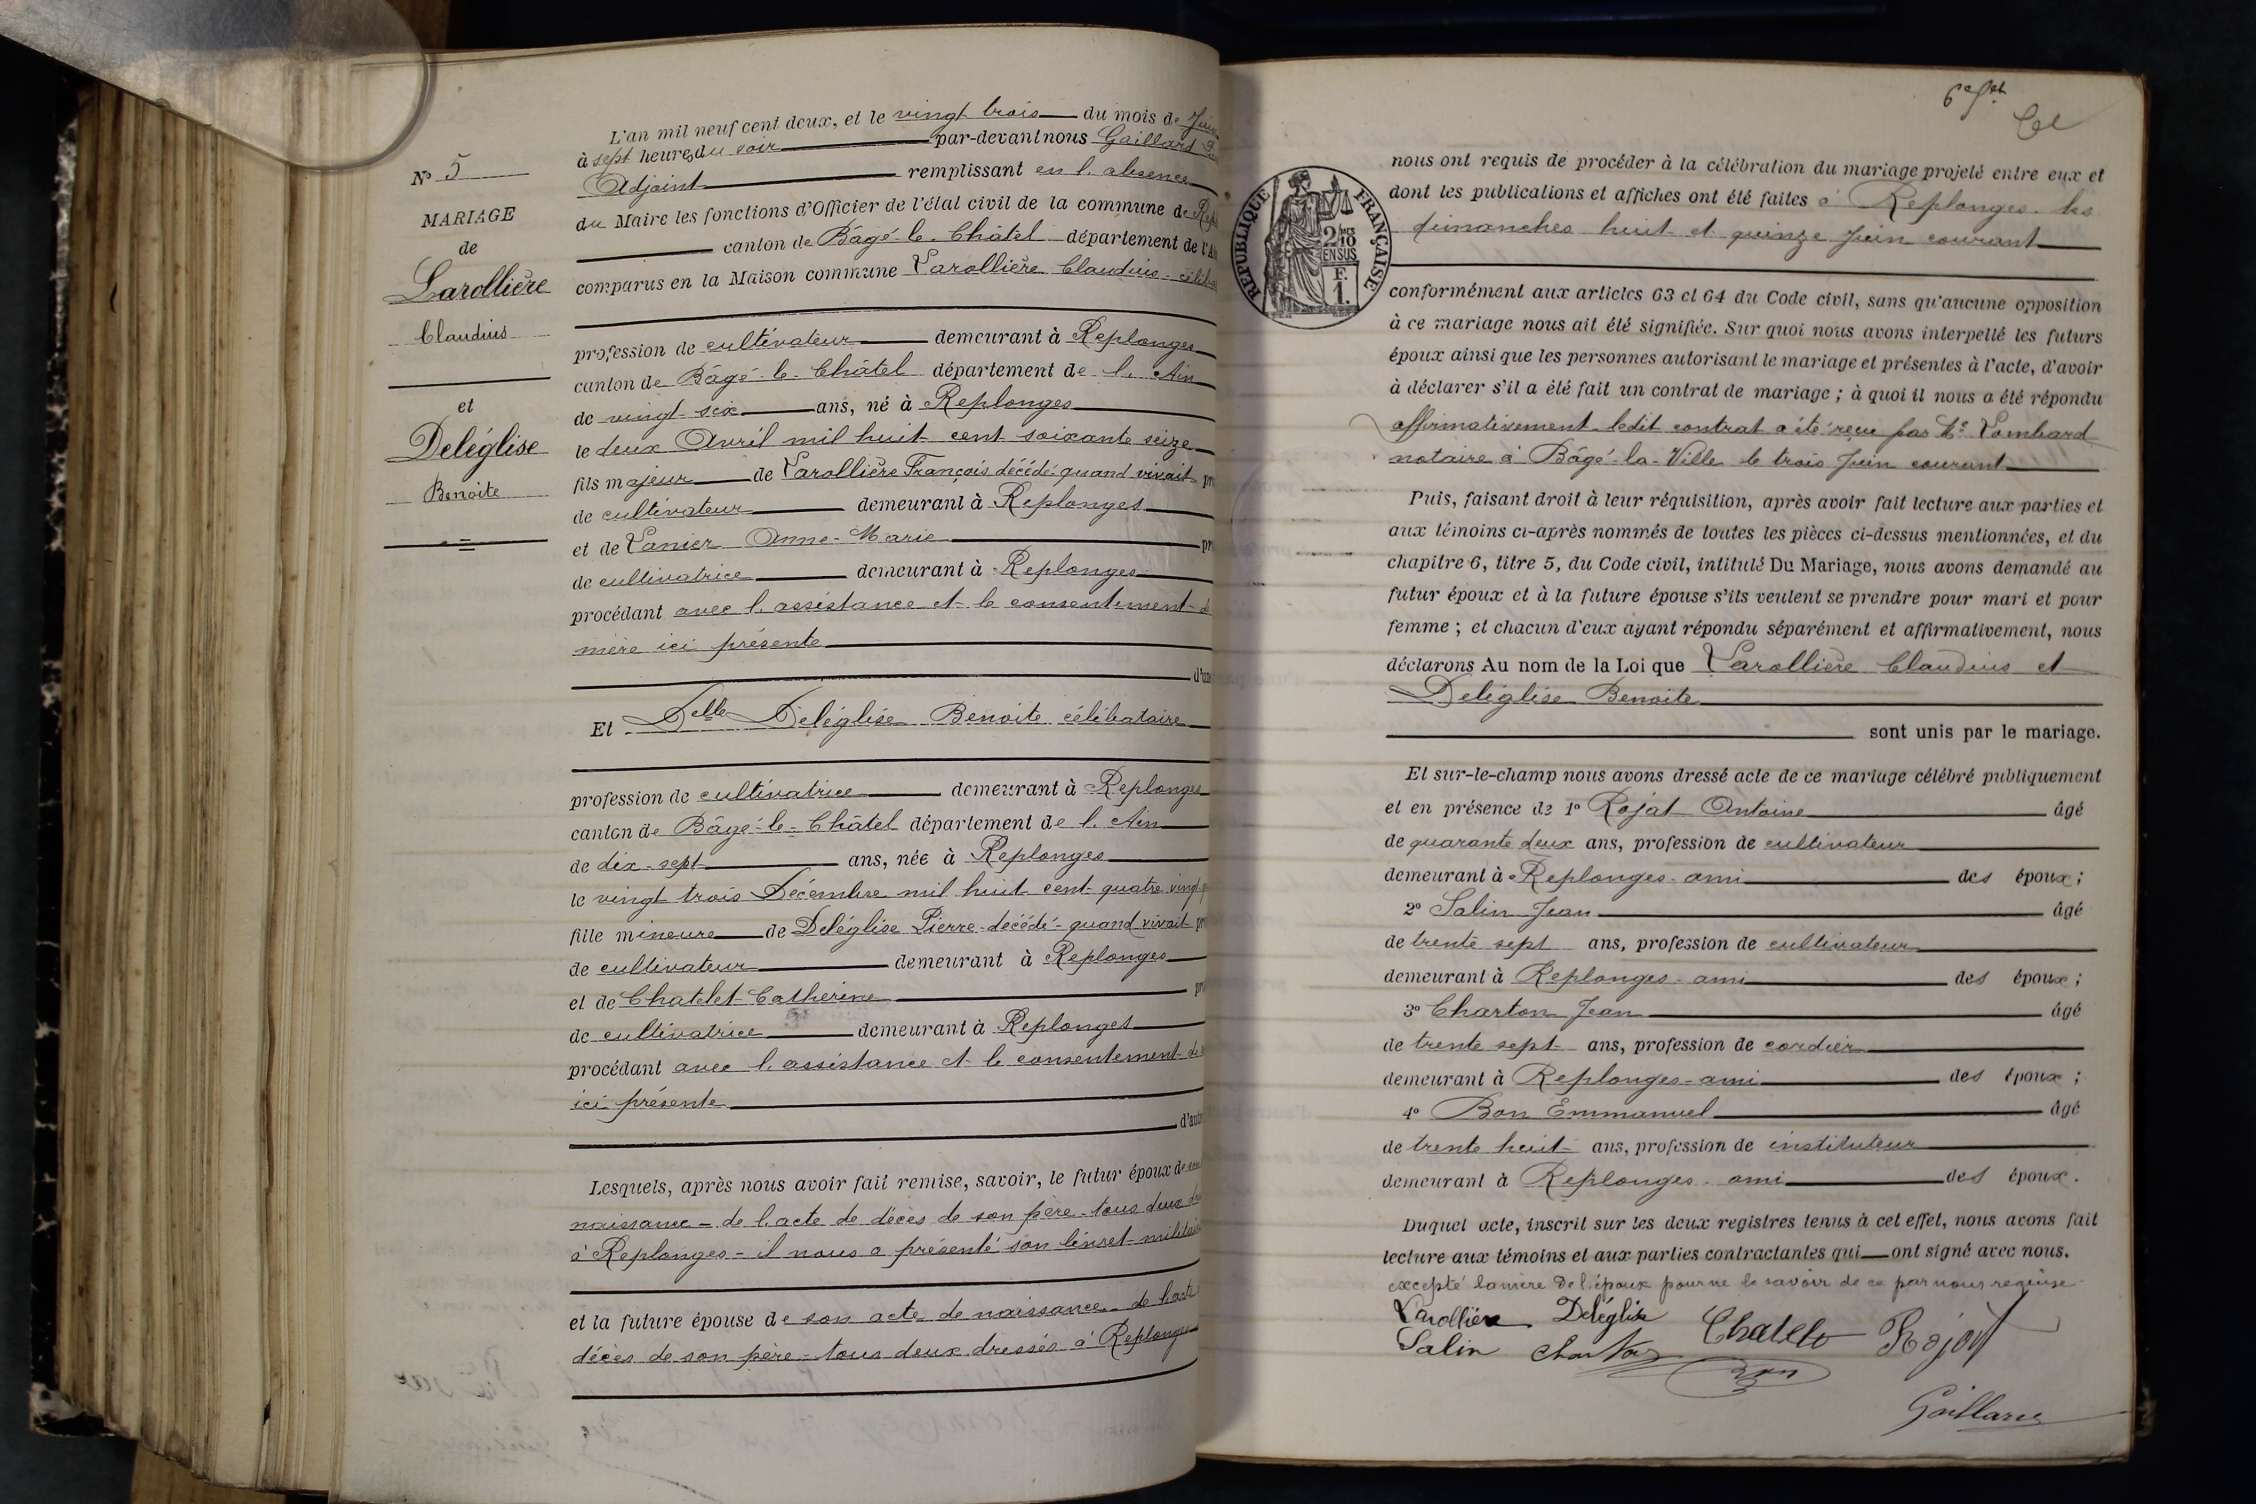 N° 5
MARIAGE
de
Larollière
Claudius
et
Deléglise
Benoite
L'an mil neuf cent deux, et le vingt trois du mois de Juin
à sept heures du soir par-devant nous Gaillard
Adjoint remplissant en l'absence
du Maire les fonctions d'Officier de l'état civil de la commune de Repl
canton de Bâgé-le-Châtel département de l'A
comparus en la Maison commune Larollière Claudius - céliba
profession de cultivateur demeurant à Replonges
canton de Bâgé-le-Châtel département de l'Ain
de vingt-six ans, né à Replonges
le deux Avril mil huit cent soixante seize
fils majeur de Larollière François décédé quand vivait pr
de cultivateur demeurant à Replonges
et de Lanier Anne-Marie pr
de cultivatrice demeurant à Replonges
procédant avec l'assistance et le consentement
mère ici présente
d'une
Et Delle Deléglise Benoite célibataire
profession de cultivatrice demeurant à Replonges
canton de Bâgé-le-Châtel département de l'Ain
de dix-sept ans, née à Replonges
le vingt trois Décembre mil huit cent quatre vingt
fille mineure de Deléglise Pierre - décédé - quand vivait pr
de cultivateur demeurant à Replonges
et de Chatelet Catherine pr
de cultivatrice demeurant à Replonges
procédant avec l'assistance et le consentement de
ici présente
d'autre
Lesquels, après nous avoir fait remise, savoir, le futur époux de son
naissance - de l'acte de décès de son père - tous deux dre
à Replonges - il nous a présenté son livret militaire
et la future épouse de son acte de naissance - de l'acte
décès de son père - tous deux dressés à Replonges
6e ft
REPUBLIQUE FRANÇAISE
2/10
EN SUS
F.
1.
nous ont requis de procéder à la célébration du mariage projeté entre eux et
dont les publications et affiches ont été faites à Replonges les
dimanches huit et quinze Juin courant
conformément aux articles 63 et 64 du Code civil, sans qu'aucune opposition
à ce mariage nous ait été signifiée. Sur quoi nous avons interpellé les futurs
époux ainsi que les personnes autorisant le mariage et présentes à l'acte, d'avoir
à déclarer s'il a été fait un contrat de mariage ; à quoi il nous a été répondu
affirmativement ledit contrat a été reçu par Me Lombard
notaire à Bâgé-la-Ville le trois Juin courant
Puis, faisant droit à leur réquisition, après avoir fait lecture aux parties et
aux témoins ci-après nommés de toutes les pièces ci-dessus mentionnées, et du
chapitre 6, titre 5, du Code civil, intitulé Du Mariage, nous avons demandé au
futur époux et à la future épouse s'ils veulent se prendre pour mari et pour
femme ; et chacun d'eux ayant répondu séparément et affirmativement, nous
déclarons Au nom de la Loi que Larollière Claudius et
Deléglise Benoite
sont unis par le mariage.
Et sur-le-champ nous avons dressé acte de ce mariage célébré publiquement
et en présence de 1° Rojat Antoine âgé
de quarante deux ans, profession de cultivateur
demeurant à Replonges - ami des époux ;
2° Salin Jean âgé
de trente sept ans, profession de cultivateur
demeurant à Replonges - ami des époux ;
3° Charton Jean âgé
de trente sept ans, profession de cordier
demeurant à Replonges - ami des époux ;
4° Bon Emmanuel âgé
de trente huit ans, profession de instituteur
demeurant à Replonges - ami des époux.
Duquel acte, inscrit sur les deux registres tenus à cet effet, nous avons fait
lecture aux témoins et aux parties contractantes qui ont signé avec nous.
excepté la mère de l'époux pour ne le savoir de ce par nous requise
Larollière Deléglise Chatelet Rojat
Salin Charton Bon
Gaillard